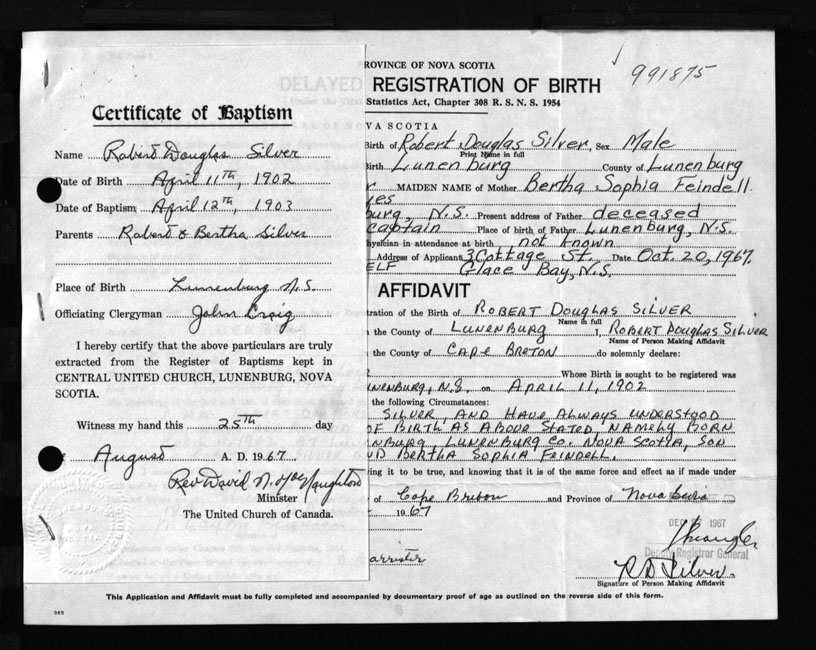 Certificate of Baptism
Name Robert Douglas Silver
Date of Birth April 11TH, 1902
Date of Baptism April 12TH, 1903
Parents Robert & Bertha Silver
Place of Birth Lunenburg N.S.
Officiating Clergyman John Craig
I hereby certify that the above particulars are truly
extracted from the Register of Baptisms kept in
CENTRAL UNITED CHURCH, LUNENBURG, NOVA
SCOTIA.
Witness my hand this 25TH day
August A. D. 1967
Rev David N. MacNaughton
Minister
The United Church of Canada.
991875
PROVINCE OF NOVA SCOTIA
DELAYED REGISTRATION OF BIRTH
Statistics Act, Chapter 308 R. S. N. S. 1954
VA SCOTIA
Birth of Robert Douglas Silver, Sex Male
Print Name in full
Birth Lunenburg County of Lunenburg
MAIDEN NAME of Mother Bertha Sophia Feindell
burg, N.S. Present address of Father deceased
captain Place of birth of Father Lunenburg, N.S.
ysician in attendance at birth not known
Address of Applicant 3 Cottage St. Date Oct. 20, 1967.
ELF Glace Bay, N.S.
AFFIDAVIT
tration of the Birth of ROBERT DOUGLAS SILVER
Name in full
the County of LUNENBURG I, ROBERT DOUGLAS SILVER
Name of Person Making Affidavit
the County of CAPE BRETON do solemnly declare:
Whose Birth is sought to be registered was
NENBURG, N.S. on APRIL 11, 1902
the following Circumstances:
SILVER, AND HAVE ALWAYS UNDERSTOOD
OF BIRTH AS ABOVE STATED, NAMELY BORN
NBURG, LUNENBURG CO. NOVA SCOTIA, SON
ND BERTHA SOPHIA FEINDELL.
ing it to be true, and knowing that it is of the same force and effect as if made under
of Cape Breton and Province of Nova Scotia
1967
DEC 1967
Deputy Registrar General
arrister
R D Silver.
Signature of Person Making Affidavit
This Application and Affidavit must be fully completed and accompanied by documentary proof of age as outlined on the reverse side of this form.